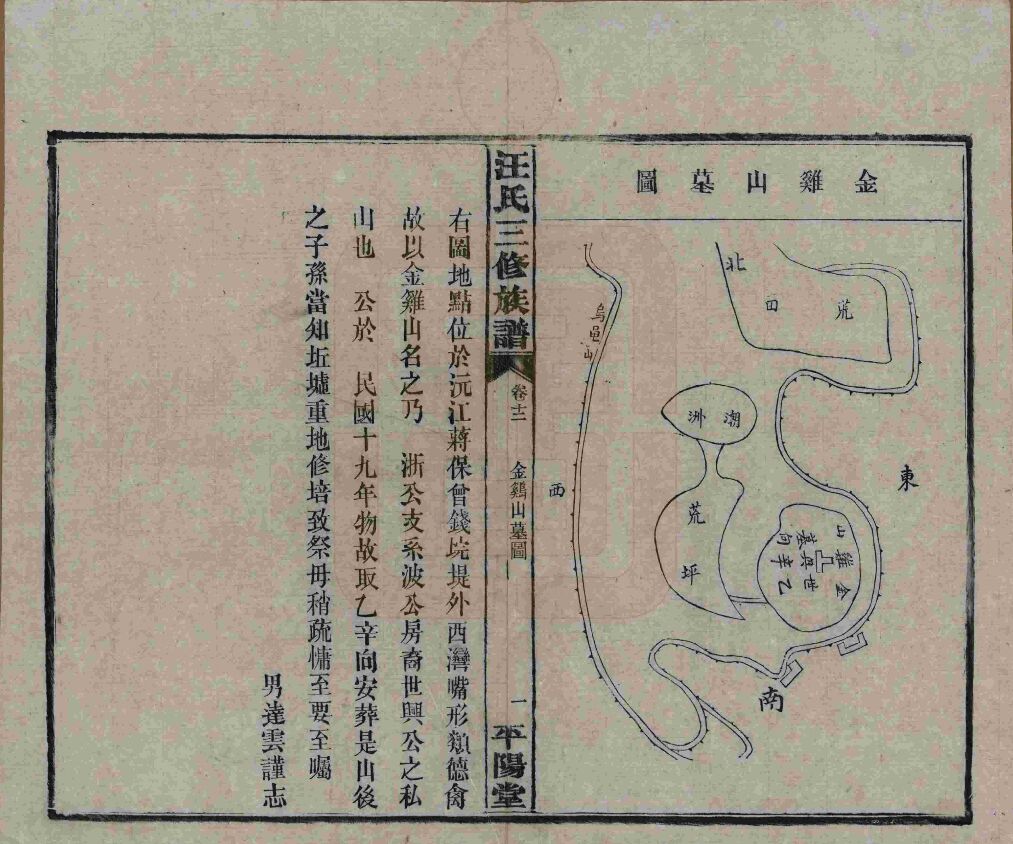 金雞山墓圖
北
荒
田
烏龜山
潮洲
東
西
荒坪
金雞山
世興墓
乙辛向
南
汪氏三修族譜
卷十二
金鷄山墓圖
一
平陽堂
右圖地點位於沅江蔣保曾錢垸堤外西灣嘴形類德禽
故以金雞山名之乃 浙公支系波公房裔世興公之私
山也 公於 民國十九年物故取乙辛向安葬是山後
之子孫當知坵墟重地修培致祭毋稍疏慵至要至囑
男達雲謹志